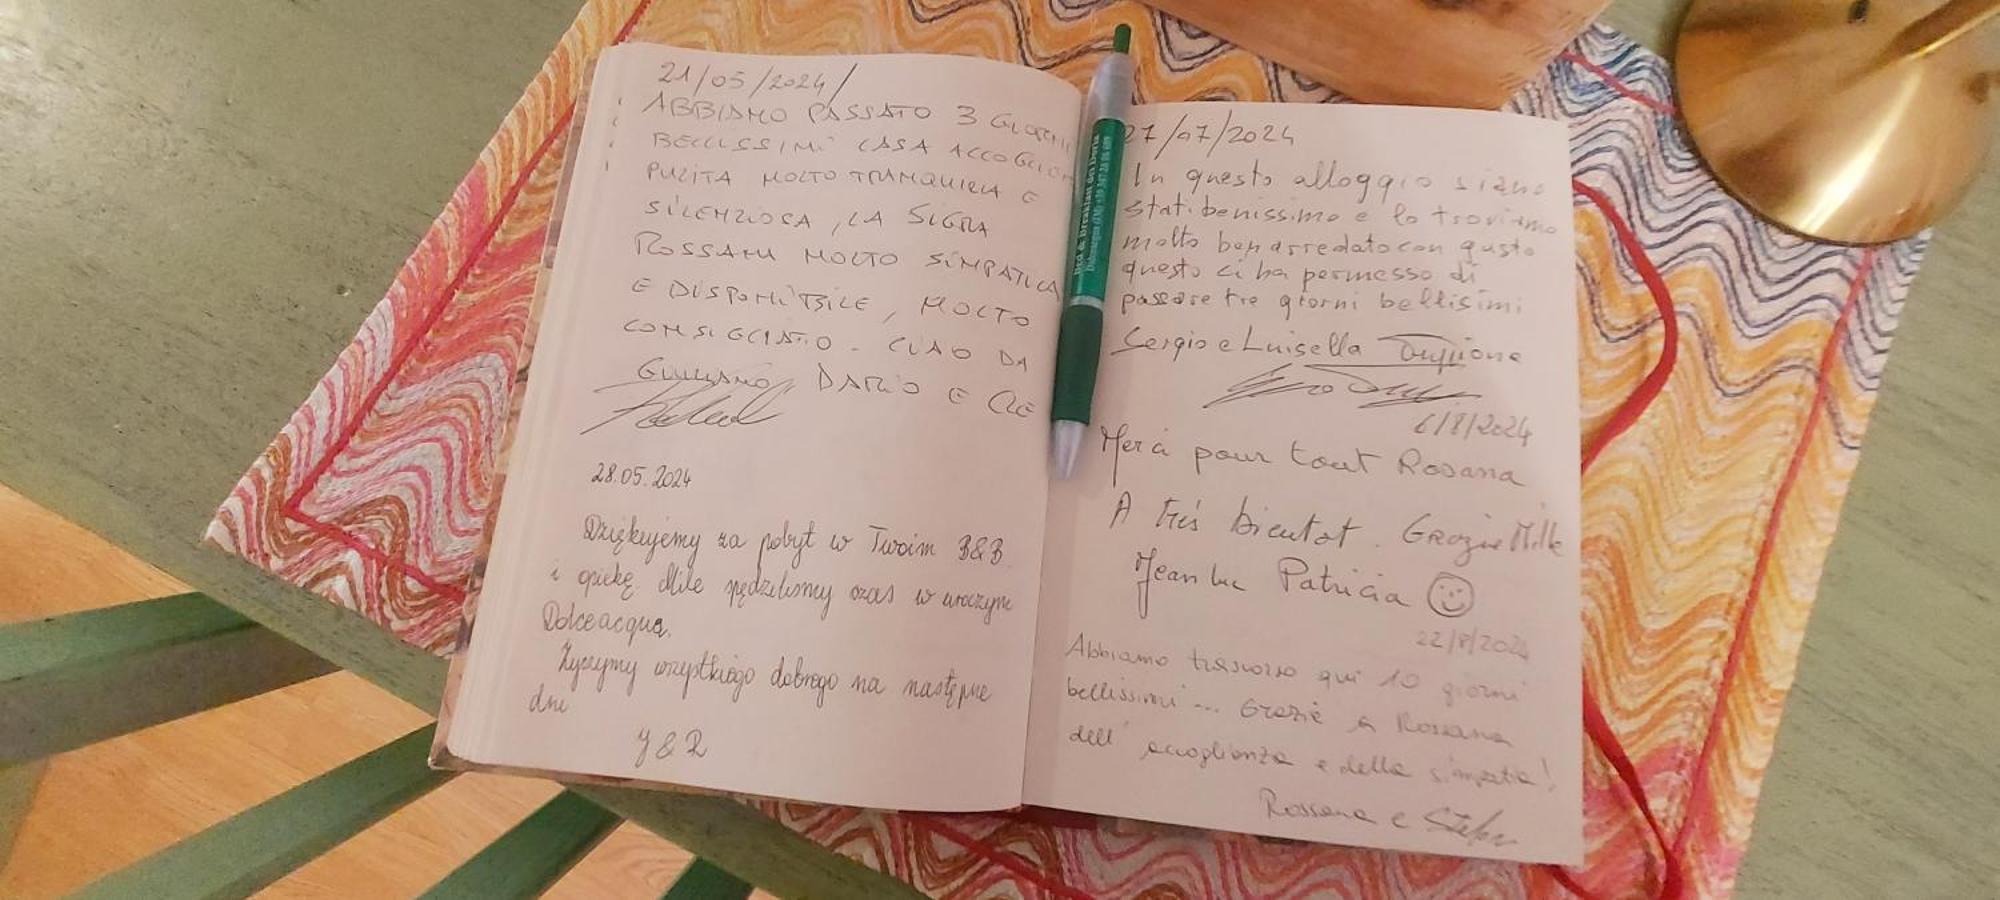 21/05/2024/
ABBIAMO PASSATO 3 GIORNI
BELLISSIMI CASA ACCOGLIEN
PULITA MOLTO TRANQUILLA E
SILENZIOSA, LA SIGRA
ROSSANA MOLTO SIMPATICA
E DISPONIBILE, MOLTO
CONSIGLIATO. CIAO DA
GIULIANO, DARIO E CLE
28.05.2024
Dziękujemy za pobyt w Twoim B&B
i opiekę. Mile spędziliśmy czas w uroczym
Dolceacqua.
Życzymy wszystkiego dobrego na następne
dni
J & R
Bed & Breakfast dei Doria
Dolceacqua (IM)
27/07/2024
In questo alloggio siamo
stati benissimo e lo troviamo
molto ben arredato con gusto
questo ci ha permesso di
passare tre giorni bellisimi
Sergio e Luisella
6/8/2024
Merci pour tout Rosana
A très bientot. Grazie Mille
Jean Luc Patricia
22/8/2024
Abbiamo trascorso qui 10 giorni
bellissimi... Grazie a Rossana
dell'accoglienza e della simpatia!
Rossana e Stefano